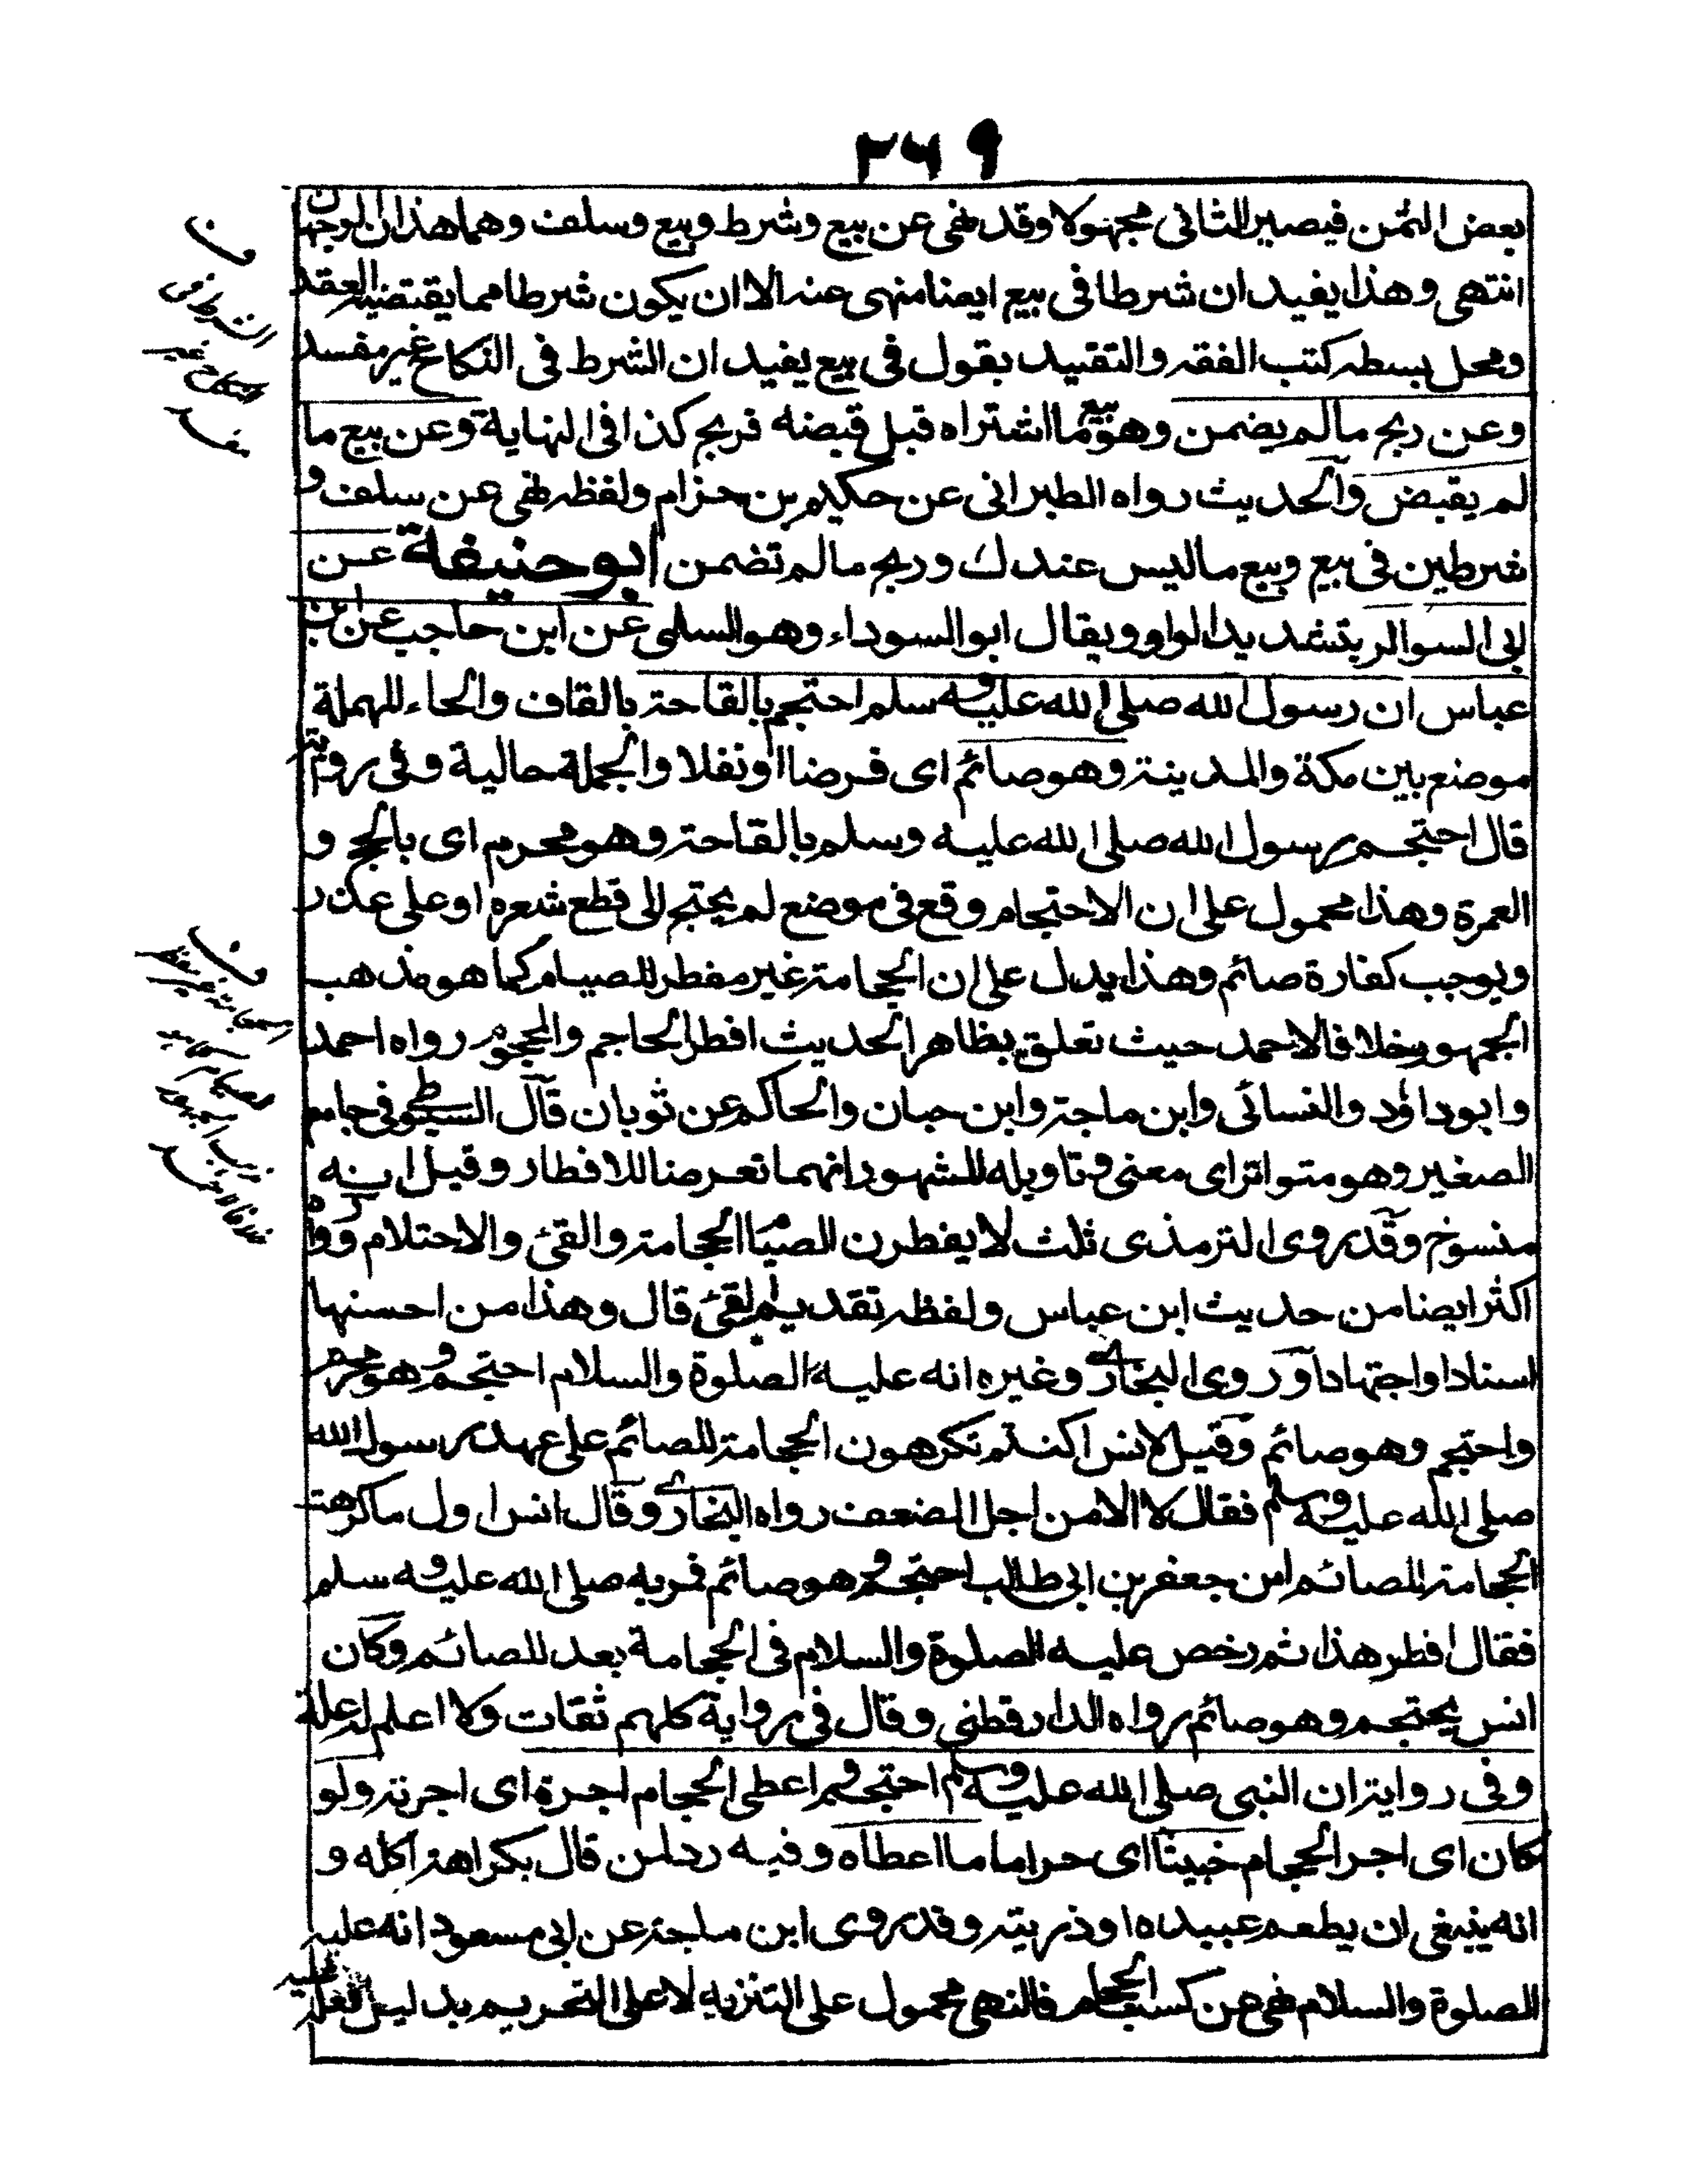 ٢٦٩
بعض الثمن فيصير الثانى مجهولا وقد نهى عن بيع وشرط وبيع وسلف وهما هذان الوجهان
انتهى وهذا يفيد ان شرطا فى بيع ايضا منهى عنه الا ان يكون شرطا مما يقتضيه العقد
ومحل بسطه كتب الفقه والتقييد بقول فى بيع يفيد ان الشرط فى النكاح غير مفسد
وعن ربح مالم يضمن وهو بيع ما اشتراه قبل قبضه فربح كذا فى النهاية وعن بيع ما
لم يقبض والحديث رواه الطبرانى عن حكيم بن حزام ولفظه نهى عن سلف و
شرطين فى بيع وبيع ماليس عندك وربح مالم تضمن ابو حنيفة عن
ابى السوار بتشديد الواو ويقال ابو السوداء وهو السلمى عن ابن حاجب عن ابن
عباس ان رسول الله صلى الله عليه وسلم احتجم بالقاحة بالقاف والحاء المهملة
موضع بين مكة والمدينة وهو صائم اى فرضا او نفلا والجملة حالية وفى رواية
قال احتجم رسول الله صلى الله عليه وسلم بالقاحة وهو محرم اى بالحج و
العمرة وهذا محمول على ان الاحتجام وقع فى موضع لم يحتج الى قطع شعره او على عذر
ويوجب كفارة صائم وهذا يدل على ان الحجامة غير مفطر للصيام كما هو مذهب
الجمهور خلافا لاحمد حيث تعلق بظاهر الحديث افطر الحاجم والمحجوم رواه احمد
وابوداؤد والنسائى وابن ماجة وابن حبان والحاكم عن ثوبان قال السيوطى فى جامع
الصغير وهو متواتر اى معنى وتاويله المشهور انهما تعرضا للافطار وقيل انه
منسوخ وقد روى الترمذى ثلث لا يفطرن الصيام الحجامة والقئ والاحتلام ورواه
اكثر ايضا من حديث ابن عباس ولفظه تقديم القئ قال وهذا من احسنها
اسنادا واجتهادا وروى البخارى وغيره انه عليه الصلوة والسلام احتجم وهو محرم
واحتجم وهو صائم وقيل لانس اكنتم تكرهون الحجامة للصائم على عهد رسول الله
صلى الله عليه وسلم فقال لا الا من اجل الضعف رواه البخارى وقال انس اول ما كرهت
الحجامة للصائم ان جعفر بن ابى طالب احتجم وهو صائم فمر به صلى الله عليه وسلم
فقال افطر هذا ثم رخص عليه الصلوة والسلام فى الحجامة بعد للصائم وكان
انس يحتجم وهو صائم رواه الدارقطنى وقال فى رواية كلهم ثقات ولا اعلم له علة
وفى رواية ان النبى صلى الله عليه وسلم احتجم و اعطى الحجام اجرة اى اجرته ولو
كان اى اجر الحجام خبيثا اى حراما ما اعطاه وفيه رد لمن قال بكراهة اكله و
انه ينبغى ان يطعم عبيده او ذريته وقد روى ابن ماجة عن ابى مسعود انه عليه
الصلوة والسلام نهى عن كسب الحجام فالنهى محمول على التنزيه لا على التحريم بدليل فعله عليه